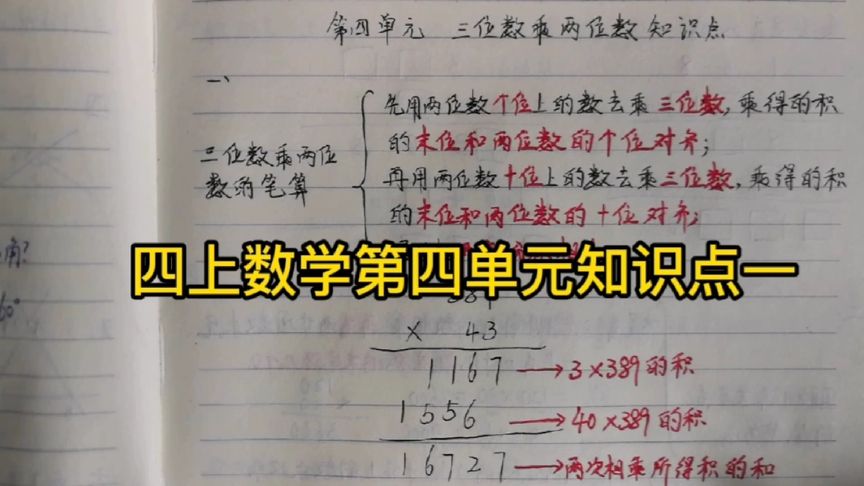 第四单元 三位数乘两位数知识点
一、
三位数乘两位
数的笔算
先用两位数个位上的数去乘三位数,乘得的积
的末位和两位数的个位对齐;
再用两位数十位上的数去乘三位数,乘得的积
的末位和两位数的十位对齐;
四上数学第四单元知识点一
× 43
1167 → 3×389的积
1556 → 40×389的积
16727 → 两次相乘所得积的和
角?